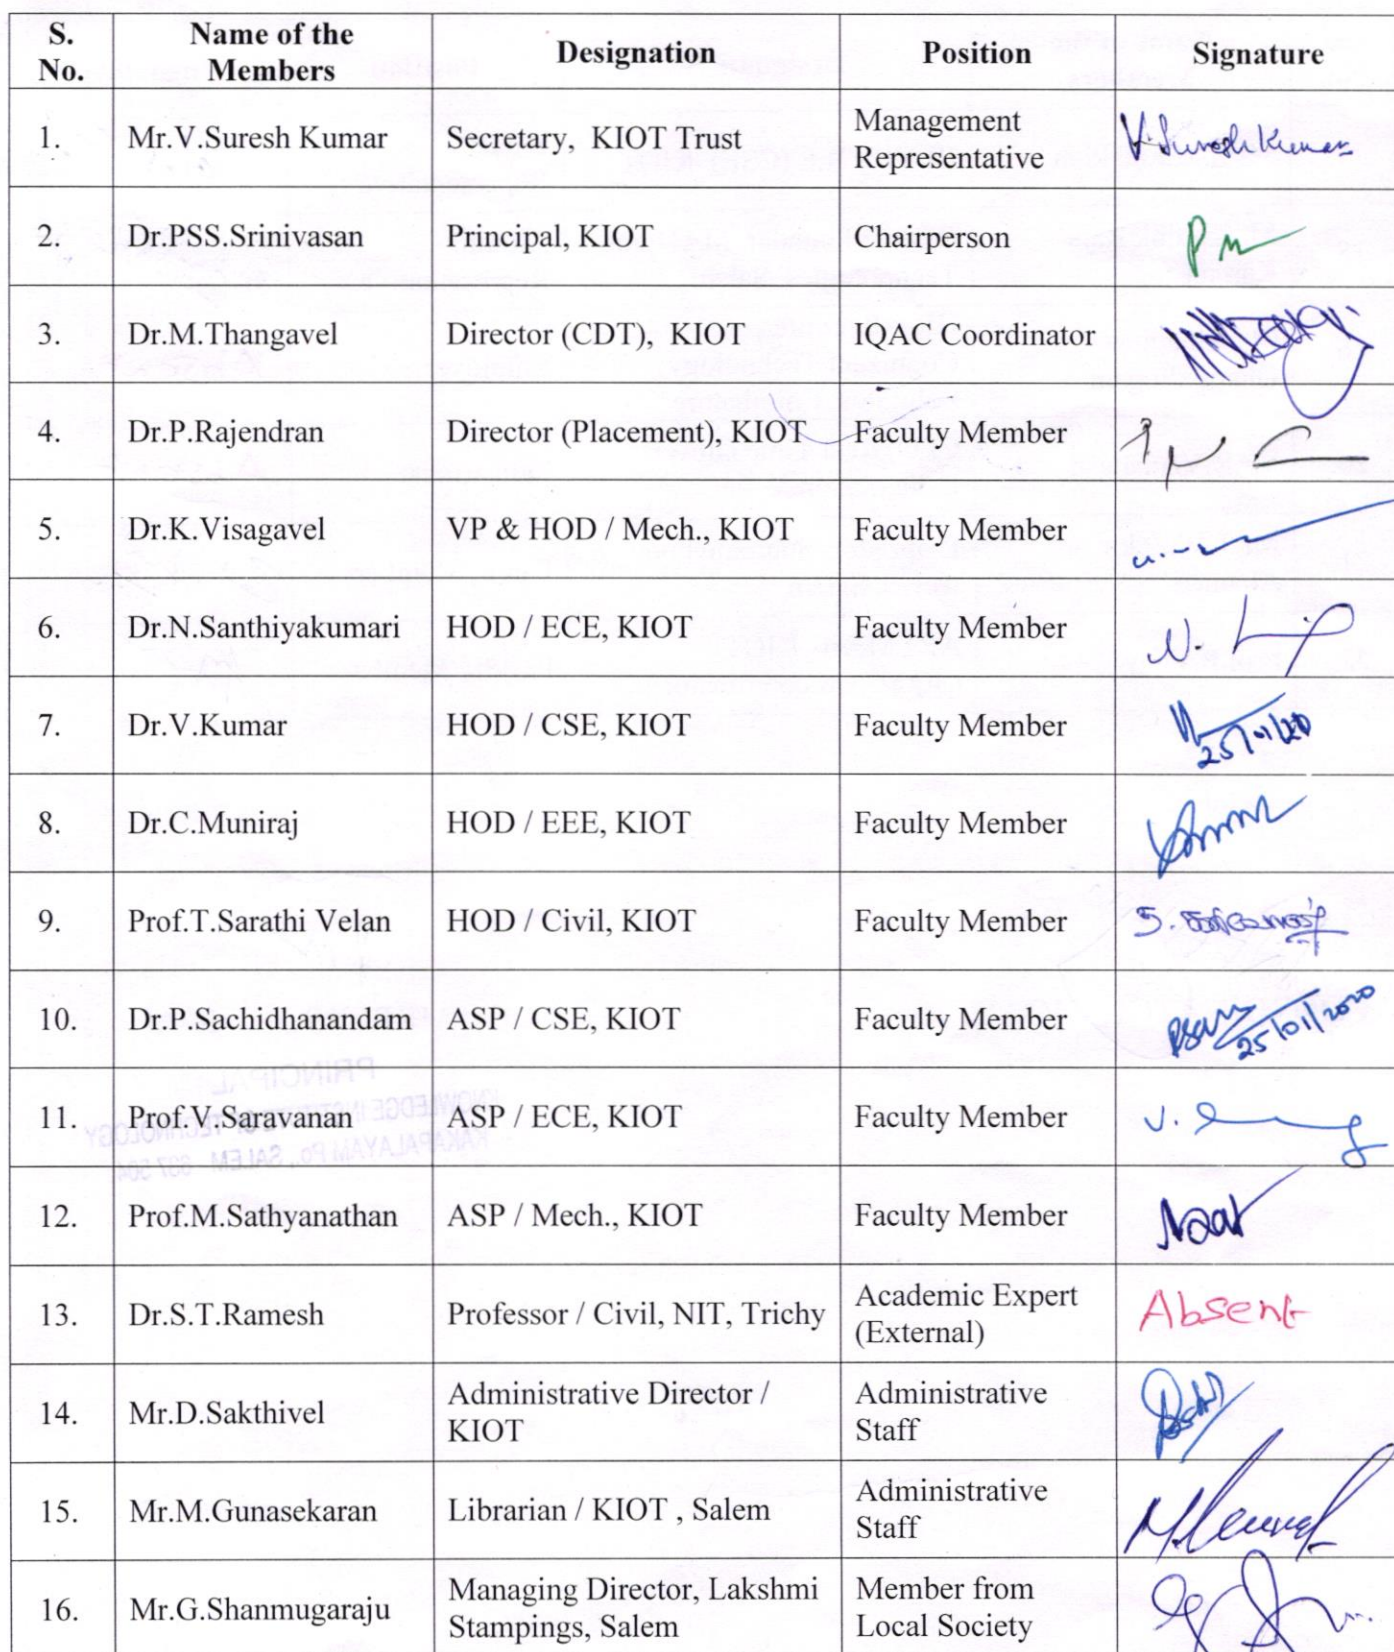 S. No. Name of the Members Designation Position Signature
1. Mr.V.Suresh Kumar Secretary, KIOT Trust Management Representative V.Sureshkumar
2. Dr.PSS.Srinivasan Principal, KIOT Chairperson
3. Dr.M.Thangavel Director (CDT), KIOT IQAC Coordinator
4. Dr.P.Rajendran Director (Placement), KIOT Faculty Member
5. Dr.K.Visagavel VP & HOD / Mech., KIOT Faculty Member
6. Dr.N.Santhiyakumari HOD / ECE, KIOT Faculty Member
7. Dr.V.Kumar HOD / CSE, KIOT Faculty Member 25/01/20
8. Dr.C.Muniraj HOD / EEE, KIOT Faculty Member
9. Prof.T.Sarathi Velan HOD / Civil, KIOT Faculty Member
10. Dr.P.Sachidhanandam ASP / CSE, KIOT Faculty Member 25/01/2020
11. Prof.V.Saravanan ASP / ECE, KIOT Faculty Member
12. Prof.M.Sathyanathan ASP / Mech., KIOT Faculty Member
13. Dr.S.T.Ramesh Professor / Civil, NIT, Trichy Academic Expert (External) Absent
14. Mr.D.Sakthivel Administrative Director / KIOT Administrative Staff
15. Mr.M.Gunasekaran Librarian / KIOT , Salem Administrative Staff
16. Mr.G.Shanmugaraju Managing Director, Lakshmi Stampings, Salem Member from Local Society
PRINCIPAL
KNOWLEDGE INSTITUTE OF TECHNOLOGY
KAKAPALAYAM Po., SALEM - 637 504